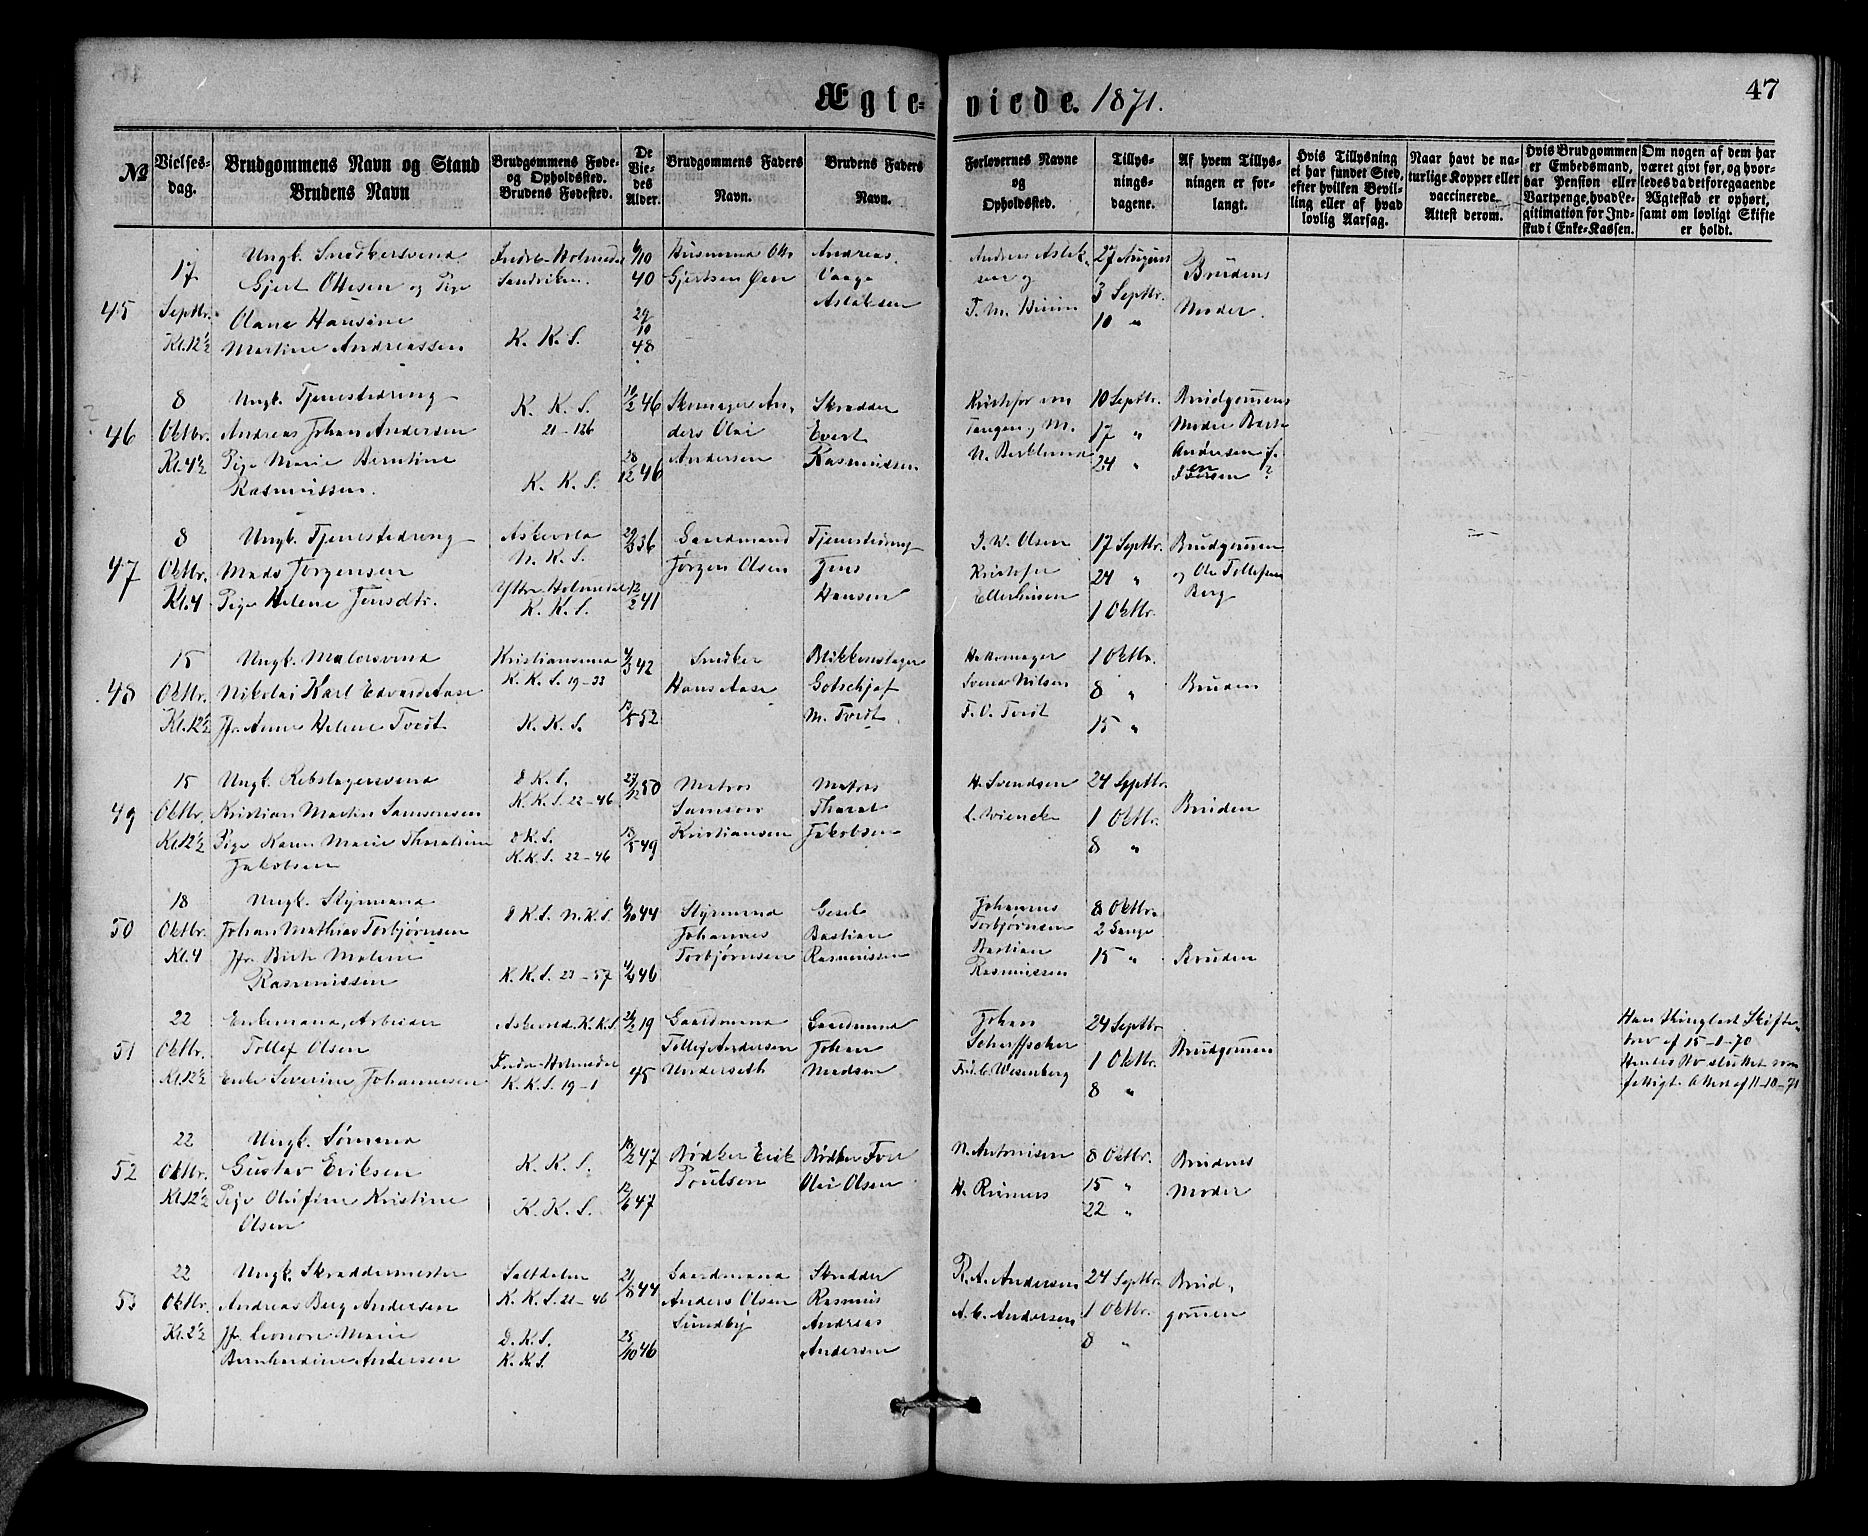 47
Ægteviede. 1871.
No
Vielses-
dag.
Brudgommens Navn og Stand
Brudens Navn
Brudgommens Føde-
og Opholdssted.
Brudens Fødested.
De
Vie-
des
Alder.
Brudgommens Faders
Navn.
Brudens Faders
Navn.
Forlovernes Navne
og
Opholdssted.
Tillys-
nings-
dagene.
Af hvem Tillys-
ningen er for-
langt.
Hvis Tillysning
ei har fundet Sted,
efter hvilken Bevil-
ling eller af hvad
lovlig Aarsag.
Naar havt de na-
turlige Kopper eller
vaccinerede.
Attest derom.
Hvis Brudgommen
er Embedsmand,
har Pension eller
Vartpenge, hvad Le-
gitimation for Ind-
skud i Enke-Kassen.
Om nogen af dem har
været givt før, og hvor-
ledes da det foregaaende
Ægteskab er ophørt,
samt om lovligt Skifte
er holdt.
45
17
Septbr.
Kl. 12½
Ungk. Snedkersvend
Gjert Ottesen og Pige
Olane Hansine
Martine Andreassen
Indre Holmedal
K. K. S.
6/10
40
29
10
48
Husmand Otto
Gjertsen Øen
Andreas
Vaage
Aslaksen
Andreas Aslak-
sen og
27 August
3 Septbr.
10 "
Brudens
Moder.
46
8
Oktbr.
Kl. 4½
Ungk. Tjenestedreng
Andreas Johan Andersen
Pige Marie Berntine
Rasmussen.
K. K. S.
21-126
K. K. S.
10/2 46
28/12 46
Skomager An-
ders Olai
Andersen
Skrædder
Evert
Rasmussen
Kristofer von
Tangen, M.
N. Berklund
10 Septbr.
17 "
24 "
Brudgommens
Moder
Andersen f.
Iversen ?
47
8
Oktbr.
Kl. 4
Ungk. Tjenestedreng
Mads Jørgensen
Pige Helene Jensdtr.
Askevold
N. K. S.
Ytre Holmedal
K. K. S.
29/3 36
12/2 41
Gaardmand
Jørgen Olsen
Tjenestedreng
Jens
Hansen
J. W. Olsen
Kristofer
Ellerhusen
17 Septbr.
24 "
1 Oktbr.
Brudgommen
og Ole Tollefsen
Berg
48
15
Oktbr.
Kl. 12½
Ungk. Malersvend
Nikolai Karl Edvard Aase
Jfr. Anne Helene Tvedt
Kristiansund
K. K. S. 19-33
K. K. S.
4/3 42
13/5 52
Snedker
Hans Aase
Blikkenslager
Gotschjaf
M. Tvedt.
Svend Nilsen
T. O. Tvedt
1 Oktbr.
8 "
15 "
Bruden
49
15
Oktbr.
Kl. 12½
Ungk. Rebslagersvend
Kristian Martin Samsonsen
Pige Karen Marie Tharaldine
Jakobsen
D K. S.
K. K. S. 22-46
D K. S.
K. K. S. 22-46
23/12 50
15/5 49
Matros
Samson
Kristiansen
Matros
Tharal
Jakobsen
H. Svendsen
L. Wiencke
24 Septbr.
1 Oktbr.
8 "
Bruden
50
18
Oktbr.
Kl. 4
Ungk. Styrmand
Johan Mathias Torbjørnsen
Jfr. Birte Malene
Rasmussen
D K. S. N. K. S.
K. K. S. 23-57
6/10 44
4/9 46
Styrmand
Johannes
Torbjørnsen
Gesel
Bastian
Rasmussen
Johannes
Torbjørnsen
Bastian
Rasmussen
8 Oktbr.
2 Gange
15 "
Bruden
51
22
Oktbr.
Kl. 12½
Enkemand, Arbeider
Tollef Olsen
Enke Severine Johannesen
Askevold. K. K. S.
Indre Holmedal
K. K. S. 19-1
26/2 19
45
Gaardmand
Tollef Andersen
Underseth
Gaardmand
Johan
Madsen
Johan
Scherffsøker
Fr. C. Wesenberg
24 Septbr
1 Oktbr.
8 "
Brudgommen
Han Thinglæst Skifte-
brev af 15-1-70
Hendes Bo sluttet som
fattigt. Attest af 11-10-71
52
22
Oktbr.
Kl. 12½
Ungk. Sømand
Gustav Eriksen
Pige Olufine Kristine
Olsen
K. K. S.
K. K. S.
18/2 47
12/6 47
Bødker Erik
Poulsen
Bødker Iver
Olai Olsen
N. Antonisen
H. Reimers
8 Oktbr.
15 "
22 "
Brudens
Moder
53
22
Oktbr.
Kl. 2½
Ungk. Skræddermester
Andreas Berg Andersen
Jfr. Leonore Marie
Bernhardine Andersen
Saltdalen
K. K. S. 21-46
D. K. S.
K. K. S.
21/8 44
25/10 46
Gaardmand
Anders Olsen
Sundby
Skrædder
Rasmus
Andreas
Andersen
R. A. Andersen
A. C. Andersen
24 Septbr.
1 Oktbr.
8 "
Brud-
gommen